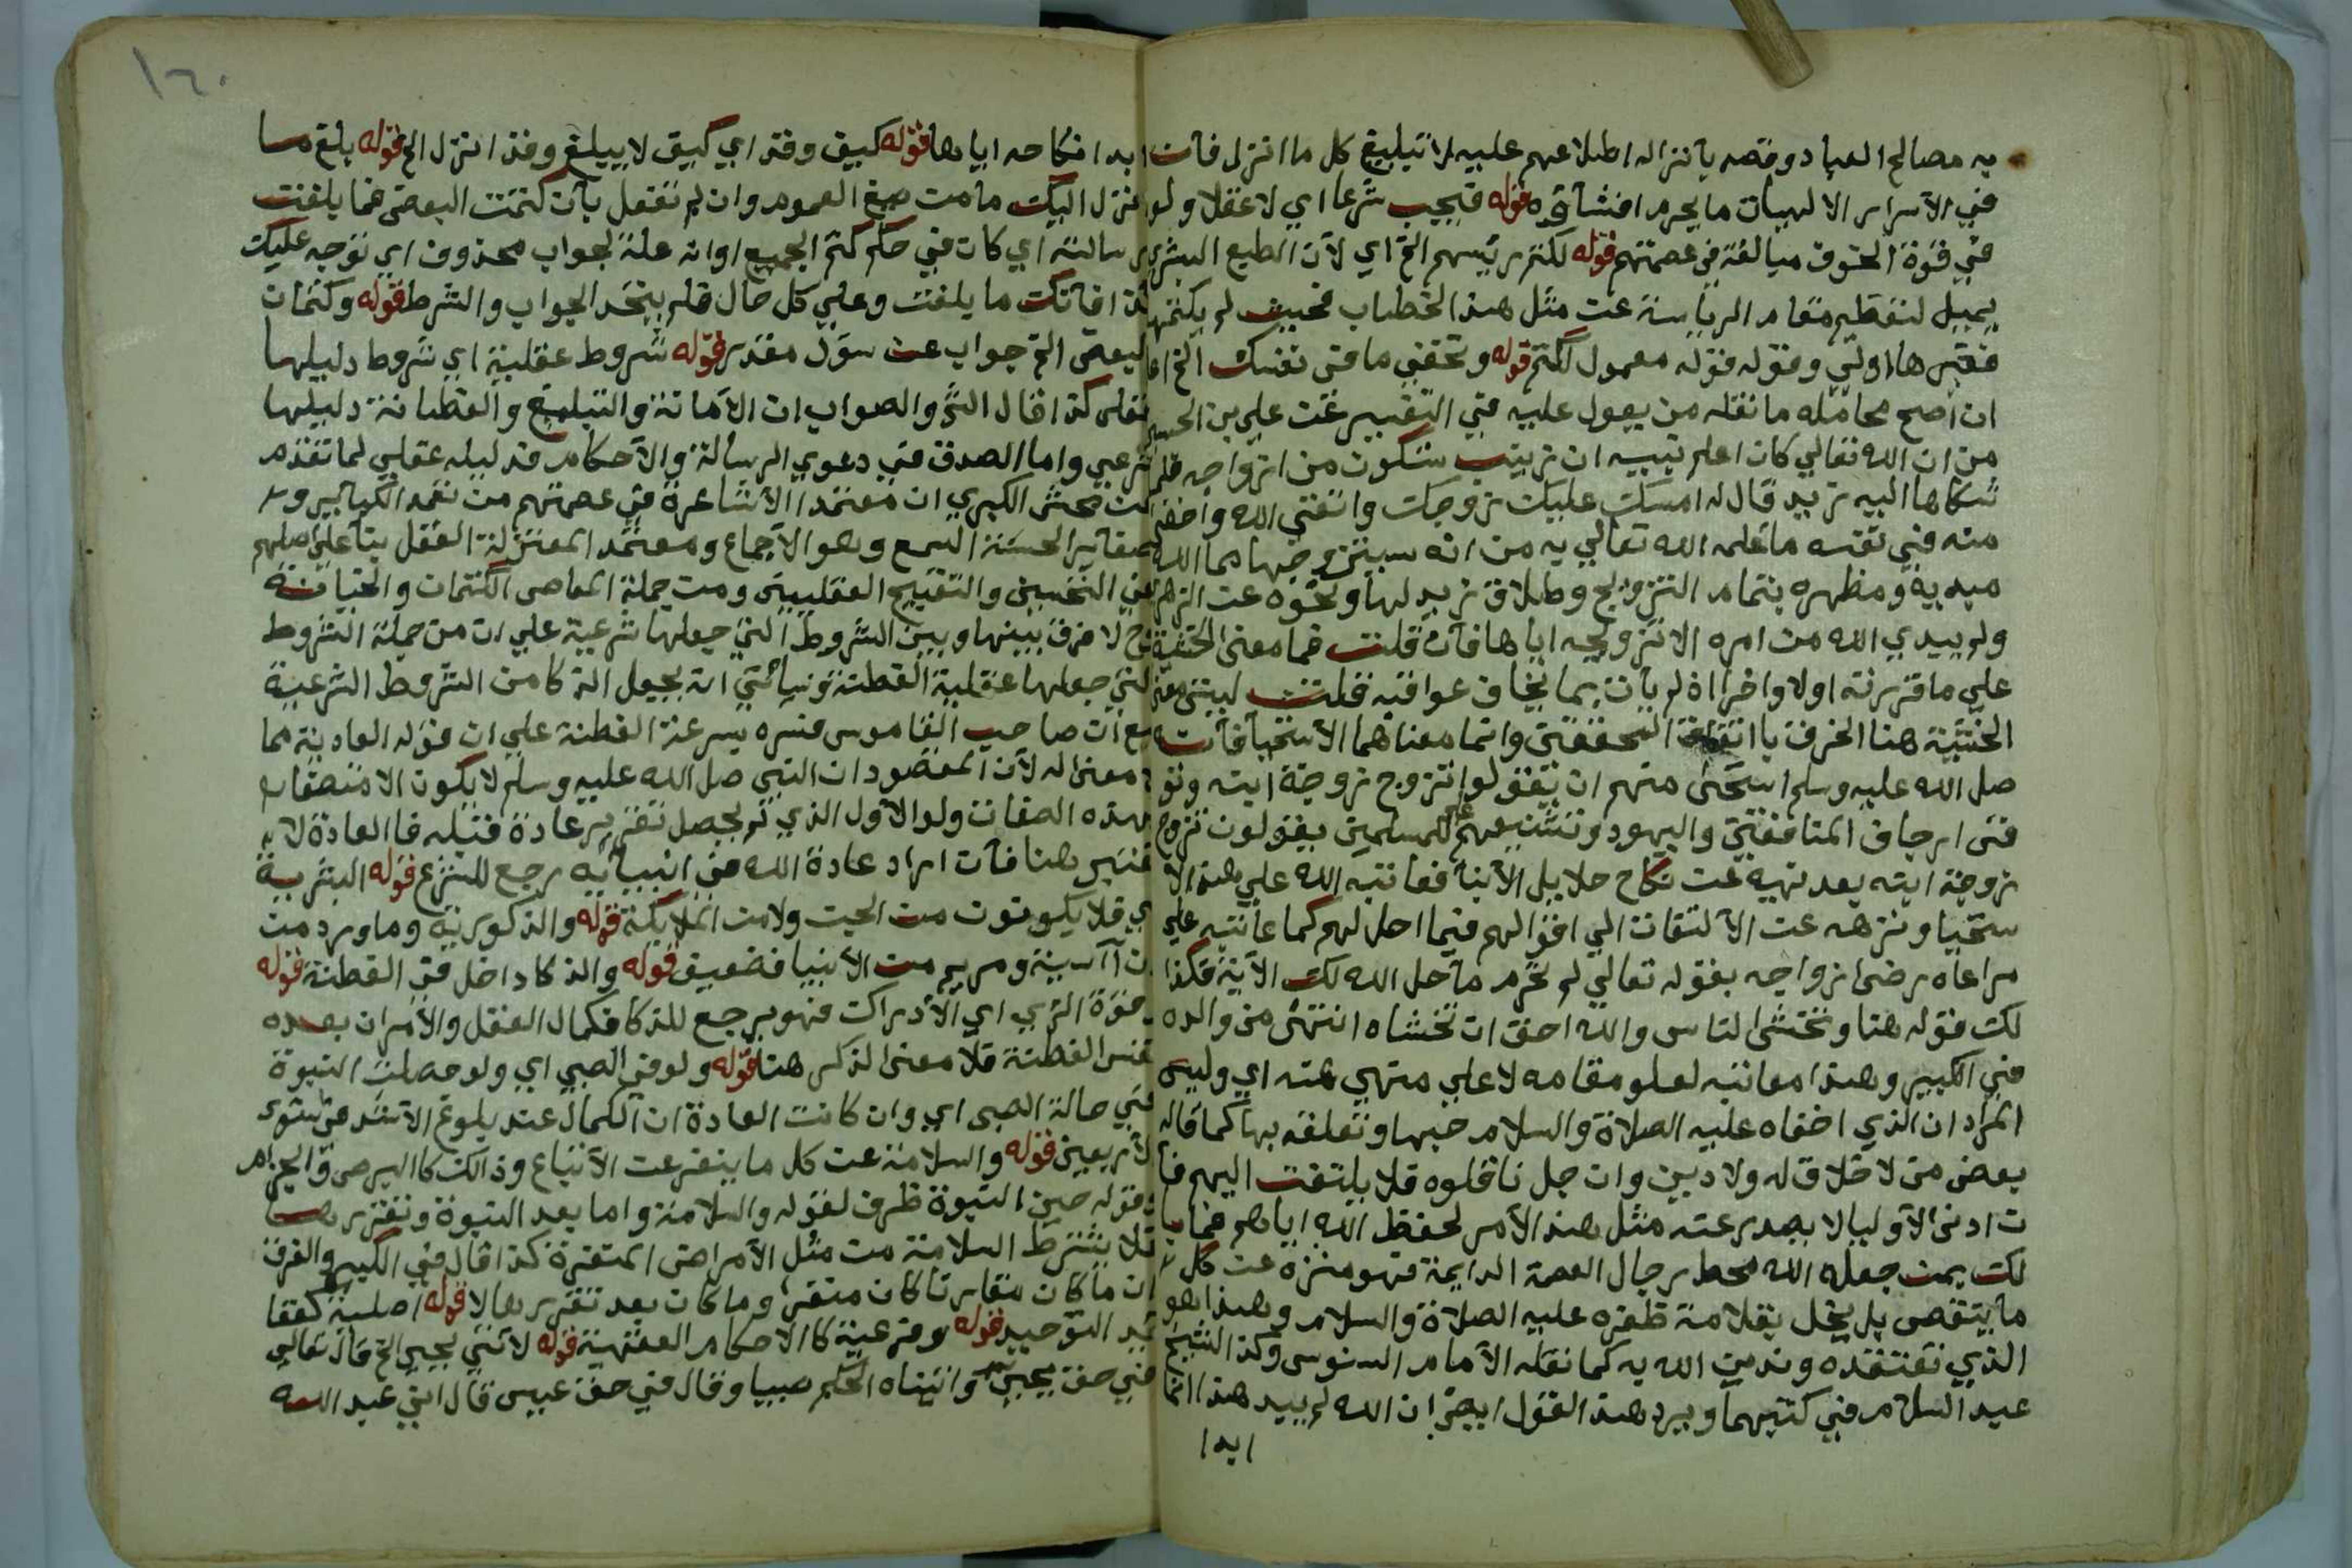 به مصالح العباد وقصد بانزاله اطلاعهم عليه لا تبليغ كل ما انزل فان
في الاسرار الالهيات ما يحرم افشاؤه قوله فيجب شرعا اي لا عقلا ولو
في قوة الخوف مبالغة في عصمتهم قوله لكتم رئيسهم الخ اي لان الطبع البشري
يميل لتعظيم مقام الرياسة عن مثل هذا الخطاب فحيث لم يكتمها
فغيرها اولى وقوله قوله معمول لكتم قوله وتخفي ما في نفسك الخ
ان اصح محامله ما نقله من يعول عليه في التفسير عن علي بن الحسين
من ان الله تعالي كان اعلم نبيه ان زينب ستكون من ازواجه فلما
شكاها اليه زيد قال له امسك عليك زوجك واتقي الله واخفى
منه في نفسه ما علمه الله تعالي به من انه سيتزوجها مما الله
مبديه ومظهره بتمام التزويج وطلاق زيد لها ونحوه عن الزهري
ولم يبدي الله من امره الا تزويجه اياها فان قلت فما معنى الخفية
علي ما قررته اولا واخرا اذ لم يات بما يخاف عواقبه قلت ليبتنى معنى
الخشية هنا الخوف يا اتفاق المحققين وانما معناهما الاستحيا فان
صل الله عليه وسلم استحى منهم ان يقولوا تزوج زوجة ابنه وتو
في ارجاف المنافقين واليهود وتشنيعهم على المسلمين بقولون تزوج
زوجة ابنه بعد نهيه عن نكاح حلايل الابنا فعاتبه الله علي هذا الا
ستحيا ونزهه عن الالتفات الي اقوالهم فيما احل لهم كما عاتبه علي
مراعاة رضى ازواجه بقوله تعالي لم تحرم ما حل الله لك الاية فكذا
لك قوله هنا وتخشى الناس والله احق ان تخشاه انتهى من والده
في الكبير وهذا معاتبه لعلو مقامه لا علي منهي عنه اي وليس
المراد ان الذي اخفاه عليه الصلاة والسلام حبها وتعلقه بها كما قاله
بعض من لا خلاق له ولا دين وان جل ناقلوه فلا يلتفت اليهم فا
ن ادنى الاوليا لا يصدر عنه مثل هذا الامر لحفظ الله اياهم فما با
لك بمن جعله الله محط رجال العصمة الدايمة فهو منزه عن كل
ما ينقص بل يخل بقلامة ظفره عليه الصلاة والسلام وهذا هو
الذي نعتقده وندين الله به كما نقله الامام السنوسي وكذا الشيخ
عبد السلام في كتبهما ويرد هذا القول ايضا ان الله لم يبيد هذا انما
ابدا
١٦٠
ابدا نكاحه اياها قوله كيف وقد اي كيف لا يبلغ وقد انزل الخ قوله بلغ ما
انزل اليك ما من صيغ العموم وان لم تفعل بان كتمت البعض فما بلغت
رسالته اي كان في حكم كتم الجميع او انه علة لجواب محذوف اي توجه عليك
لذا فانك ما بلغت وعلي كل حال فلم يتحد الجواب والشرط قوله وكتمان
البعض الخ جواب عن سؤل مقدر قوله شروط عقلية اي شروط دليلها
عقلي كذا قال الش والصواب ان الامانة والتبليغ والفطانة دليلها
شرعي واما الصدق في دعوي الرسالة والاحكام فدليله عقلي لما تقدم
عن محشي الكبري ان معتمد الاشاعرة في عصمتهم من تعمد الكباير و
صغاير الخسة السمع وهو الاجماع ومعتمد المعتزلة العقل بنا علي اصلهم
في التحسين والتقبيح العقليين ومن جملة المعاصي الكتمان والخيانة
فح لا فرق بينها وبين الشروط التي جعلها شرعية علي ان من جملة الشروط
التي جعلها عقلية الفطنة وسياتي انه يجعل الذكا من الشروط الشرعية
مع ان صاحب القاموس فسره بسرعة الفطنة علي ان قوله العادية مما
لا معنى له لان المقصود ان النبي صل الله عليه وسلم لا يكون الا متصفا
بهذه الصفات ولو الاول الذي لم يحصل تقرير عادة قبله فا العادة لا
تعتبر هنا فان اراد عادة الله في انبيايه رجع للشرع قوله البشرية
اي فلا يكونون من الجن ولا من الملايكة قوله والذكورية وما ورد من
ان آسية ومريم من الانبيا فضعيف قوله والذكا داخل في الفطنة قوله
وقوة الري اي الادراك فهو يرجع للذكا فكمال العقل والامران بعده
نفس الفطنة فلا معنى الذكر هنا قوله ولو في الصبي اي ولو حصلت النبوة
في حالة الصبى اي وان كانت العادة ان الكمال عند بلوغ الاشد
الاربعين قوله والسلامة عن كل ما ينفر عن الاتباع وذالك كا البرص والجزام
وقوله حين النبوة ظرف لقوله والسلامة واما بعد النبوة وتقررها
فلا يشترط السلامة من مثل الامراض المنفرة كذا قال في الكبير والفرق
ان ما كان مقارنا كان منفر وما كان بعد تقررها لا قوله اصلية كعقا
يد التوحيد قوله وفرعية كا الاحكام الفقهية قوله لا تني يحيي الخ قال تعالي
في حق يحيى واتيناه الحكم صبيا وقال في حق عيسى قال اني عبد الله